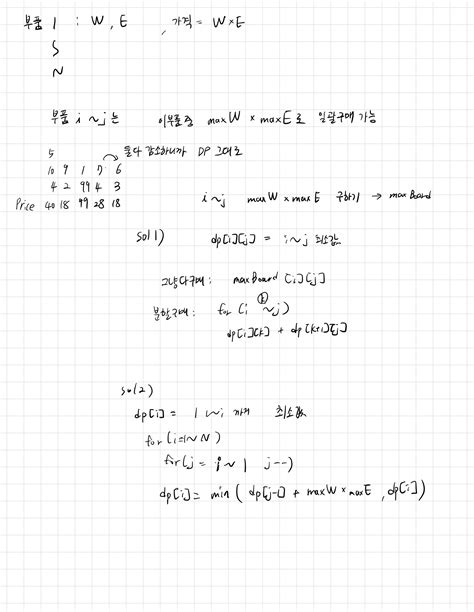 부품 1 : W, E , 가격 = W×E
S
N
부품 i ~ j는 이부품중 maxW × maxE로 일괄구매 가능
5 둘다 감소하니까 DP 그대로
10 9 1 7 6
4 2 99 4 3
Price 40 18 99 28 18
i ~ j maxW × maxE 구하기 → maxBoard
sol1) dp[i][j] = i~j 최소값
그냥다구매: maxBoard [i][j]
분할구매: for (i ~ j)
k
dp[i][k] + dp[k+1][j]
sol2)
dp[i] = 1~i 까지 최소값
for (i=1~N)
for(j = i ~ 1 j--)
dp[i] = min ( dp[j-1] + maxW × maxE , dp[i] )